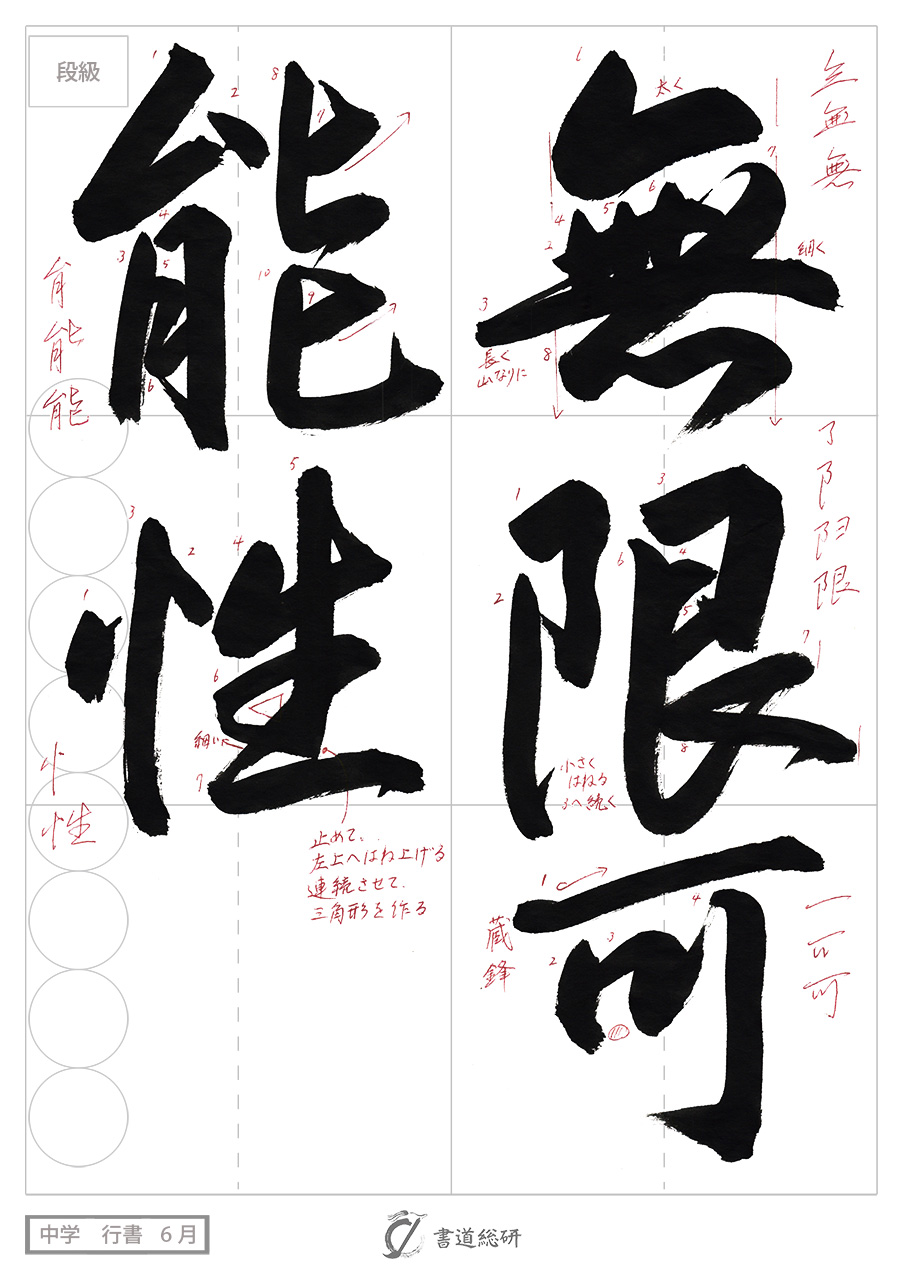 無限可
能性
段級
太く
細く
長く
山なりに
小さく
はねる
3へ続く
蔵鋒
細いに
止めて、
左上へはね上げる
連続させて、
三角形を作る
中学 行書 6月
書道総研